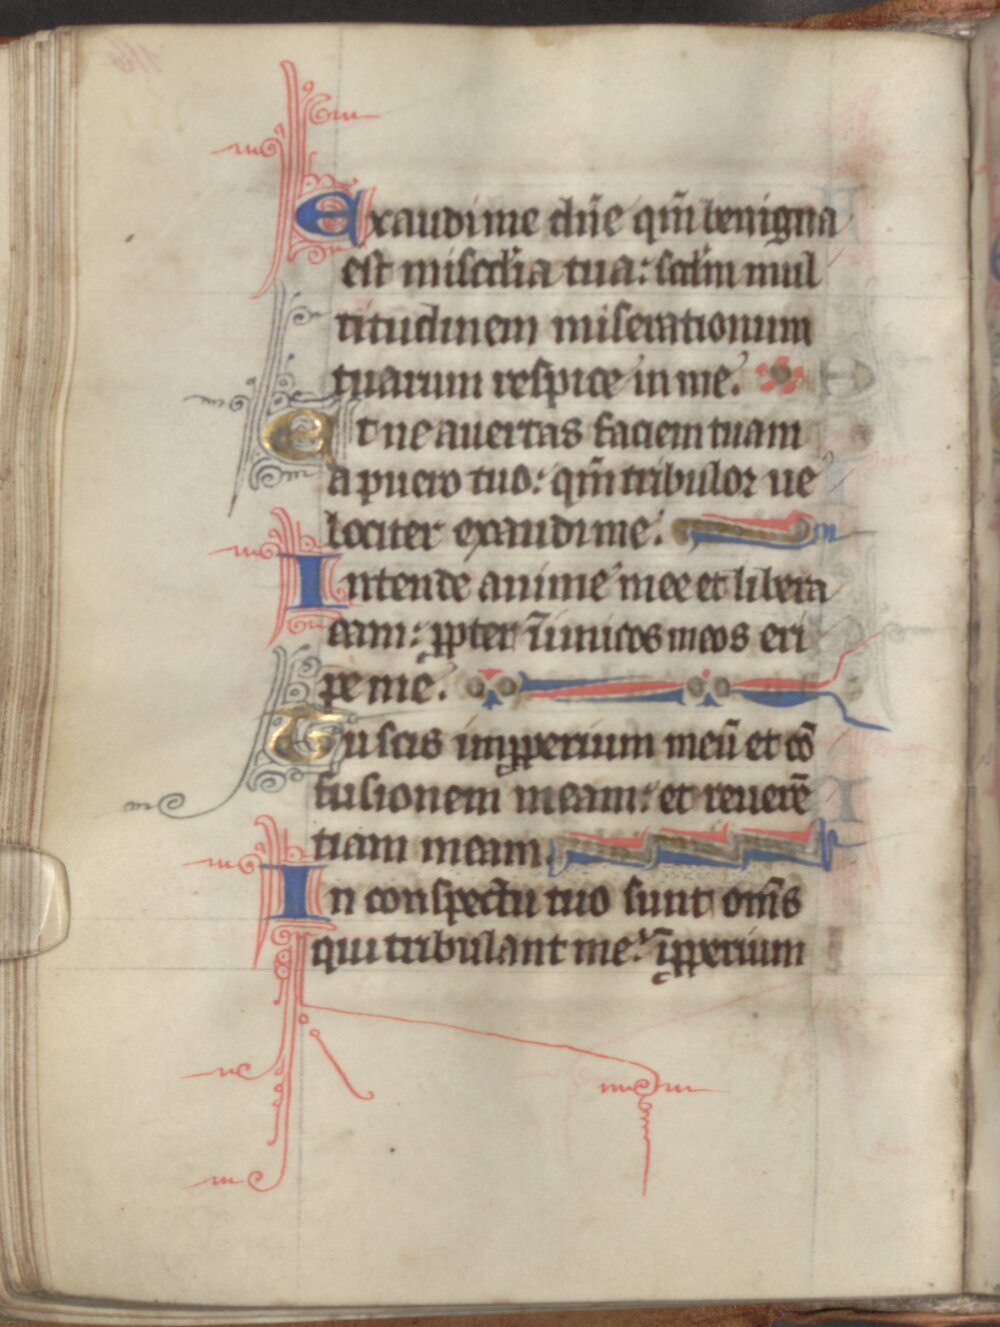 Exaudi me dn̄e qm̄ benigna
est misc̄dia tua: sc̄dm mul
titudinem miserationum
tuarum respice in me.
Et ne avertas faciem tuam
a puero tuo: qm̄ tribulor ve
lociter exaudi me.
Intende anime mee et libera
eam: ꝓpter īimicos meos eri
pe me.
Tu scis imꝓperium meū et cō
fusionem meam: et reverē
tiam meam.
In conspectu tuo sunt om̄s
qui tribulant me: īꝓperium